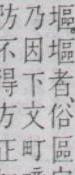 塸塸者俗區
乃因下文町
防不得方正